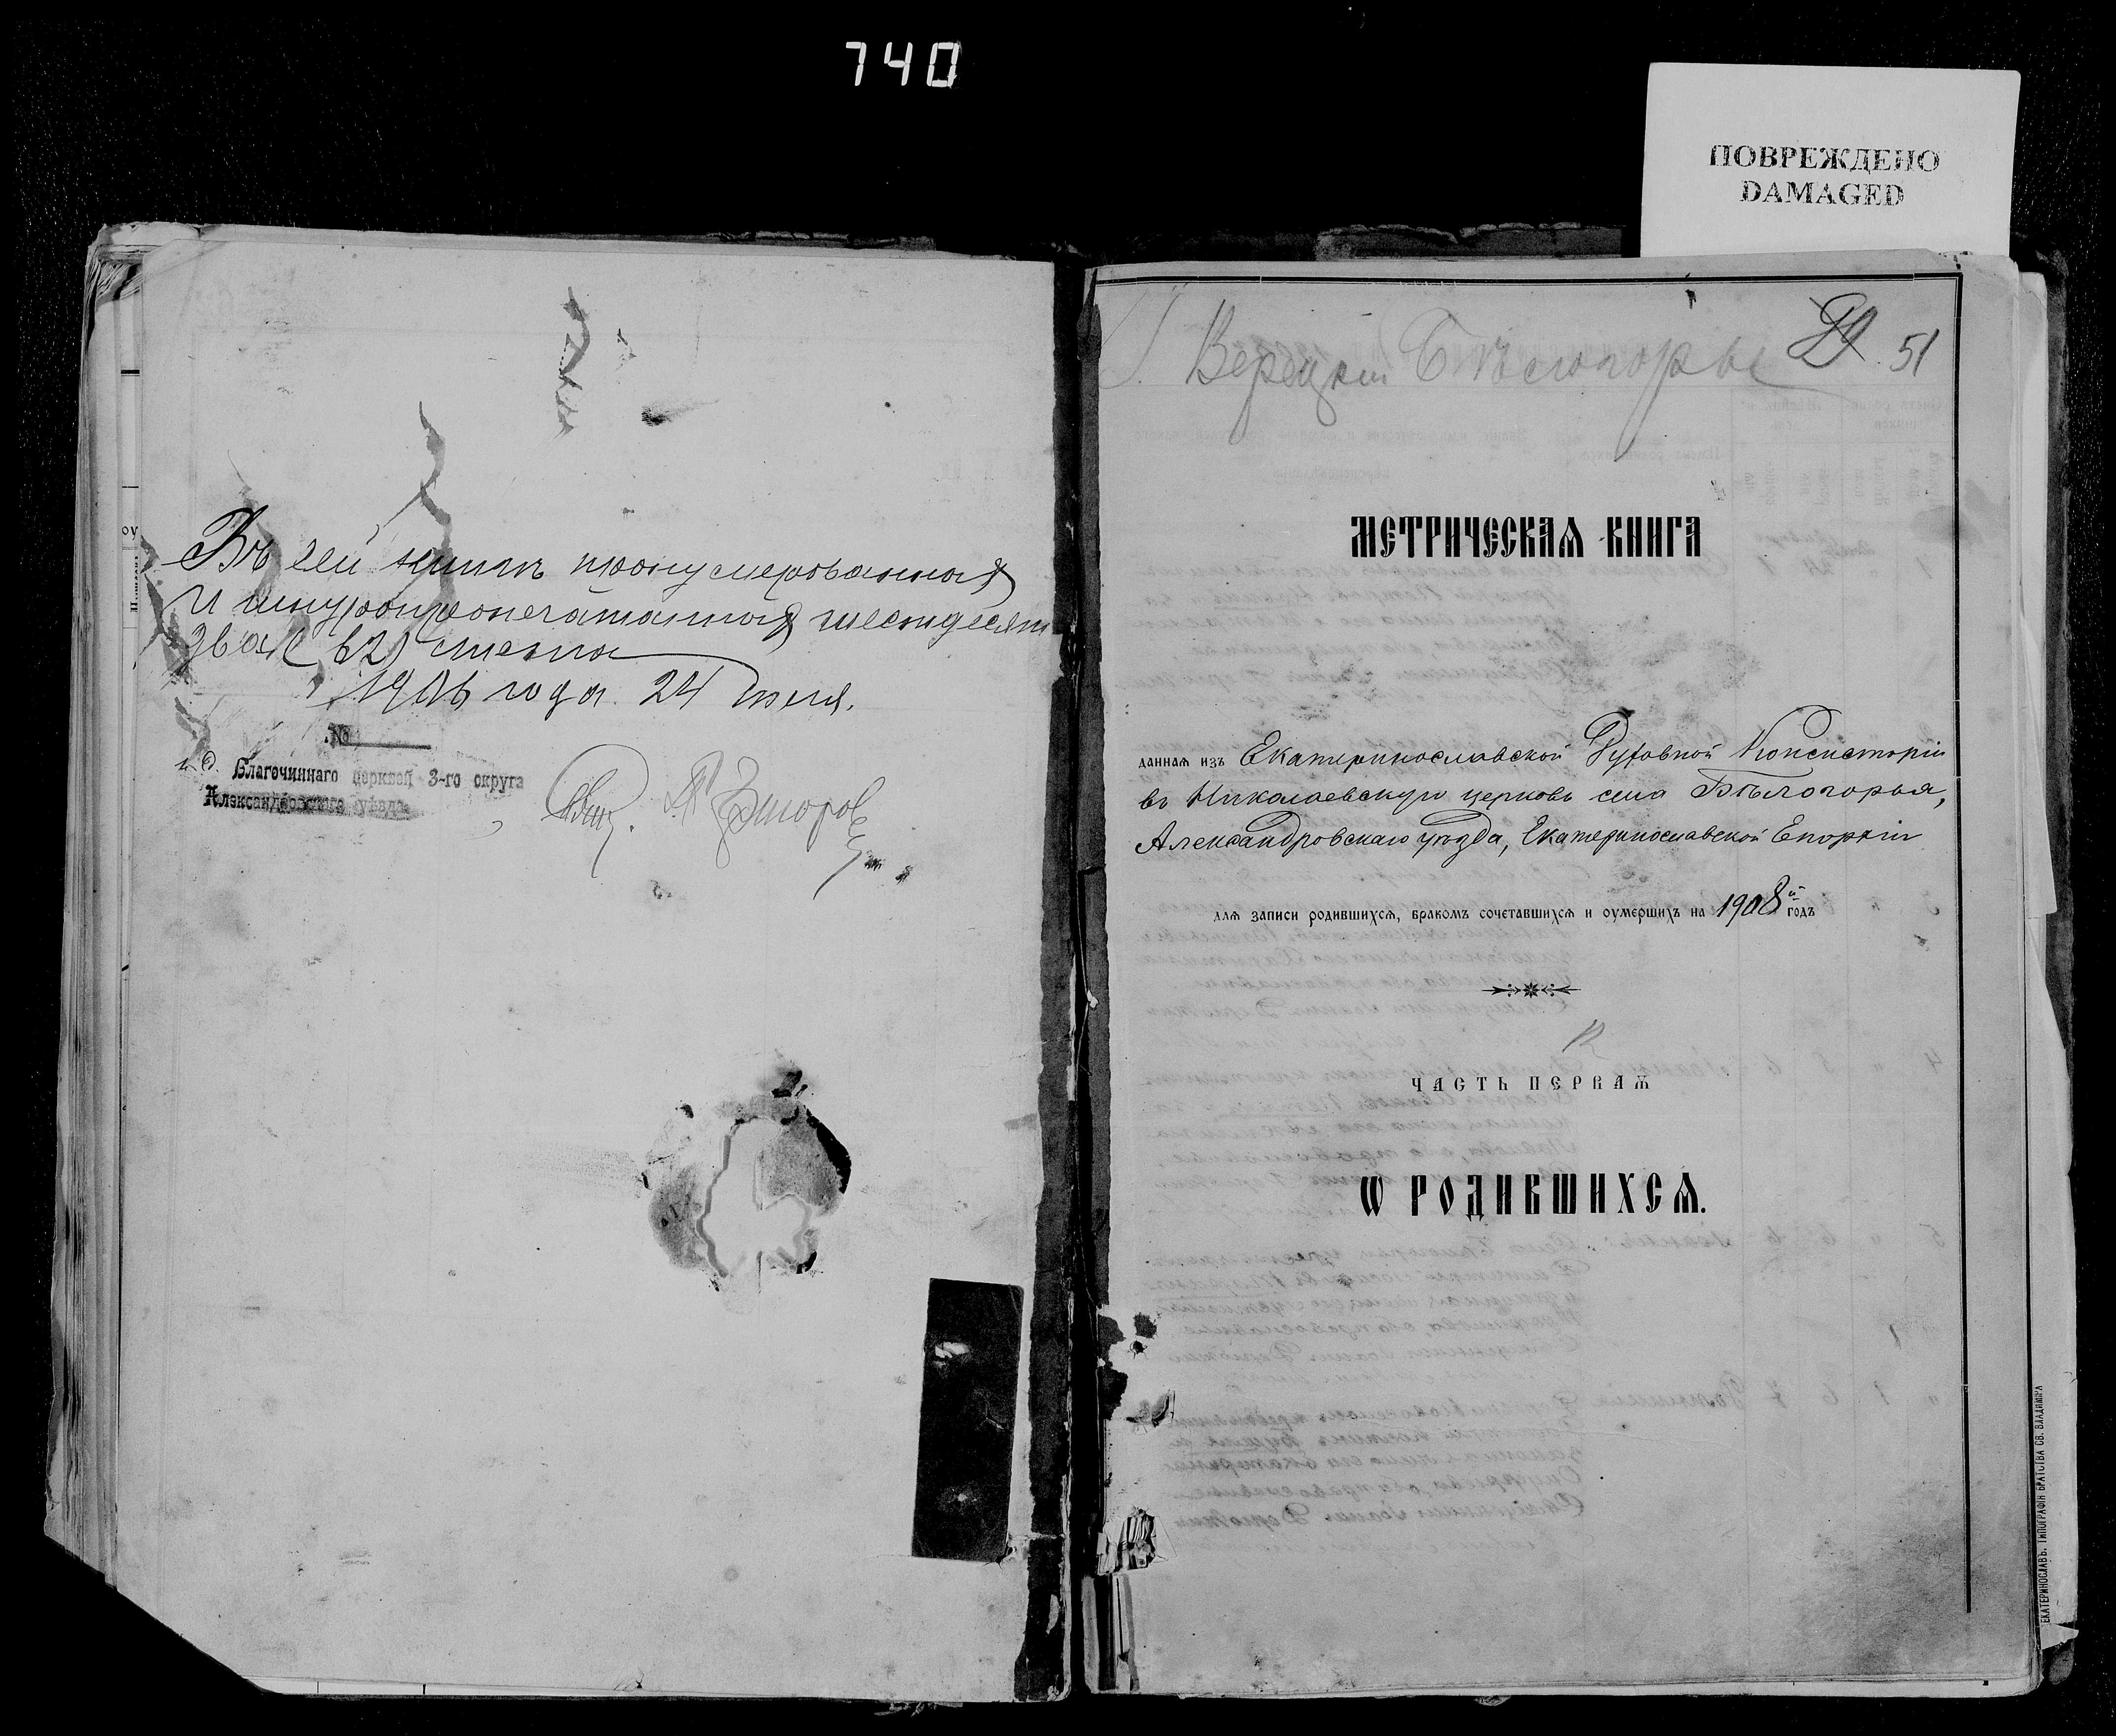 740
ПОВРЕЖДЕНО
DAMAGED
Въ сей книгѣ пронумерованная
и шнуропропечатанная шестдесят
два (62) листа
1906 года. 24 дня.
№
и. д. Благочиннаго церквей 3-го округа
Александровскаго уѣзда
51
МЕТРИЧЕСКАѦ КНИГА
даннаѧ изъ Екатеринославской Духовной Консисторіи
въ Николаевскую церковь села Бѣлогорья,
Александровскаго уѣзда, Екатеринославской Епархіи
длѧ записи родившихсѧ, бракомъ сочетавшихсѧ и оумершихъ на 1908й годъ
ЧАСТЬ ПЕРВАѦ
Ѡ РОДИВШИХСѦ.
ЕКАТЕРИНОСЛАВЪ. ТИПОГРАФІЯ БРАТСТВА СВ. ВЛАДИМІРА